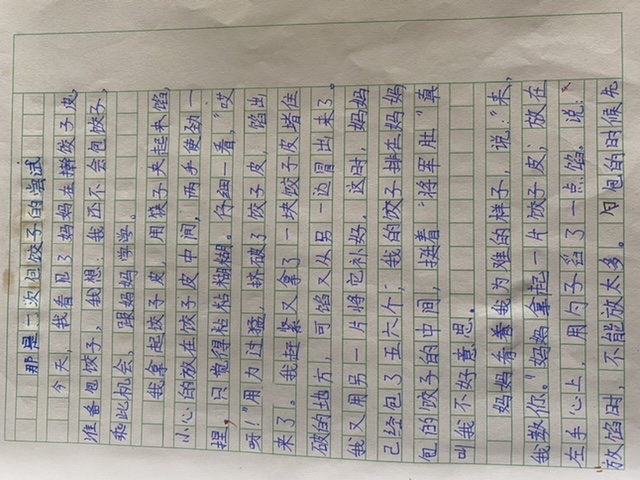 那是一次包饺子的尝试
今天，我看见了妈妈在擀饺子皮，
准备包饺子，我想：我还不会包饺子，
乘此机会，跟妈妈学学。
我拿起饺子皮，用筷子夹起来馅，
小心的放在饺子皮中间，两手使劲一
捏，只觉得粘粘糊糊。仔细一看，“哎
呀！”用力过猛，挤破了饺子皮，馅出
来了。我赶紧又拿了一块饺子皮堵住
破的地方，可馅又从另一边冒出来了。
我又用另一片将它补好，这时，妈妈
已经包了五六个，我的饺子排在妈妈
包的饺子的中间，挺着“将军肚”真
叫我不好意思。
妈妈看着我为难的样子，说：“来，
我教你。”妈妈拿起一片饺子皮；放在
左手心上，用勺子舀了一点馅。说：
放馅时，不能放太多。包的时候先